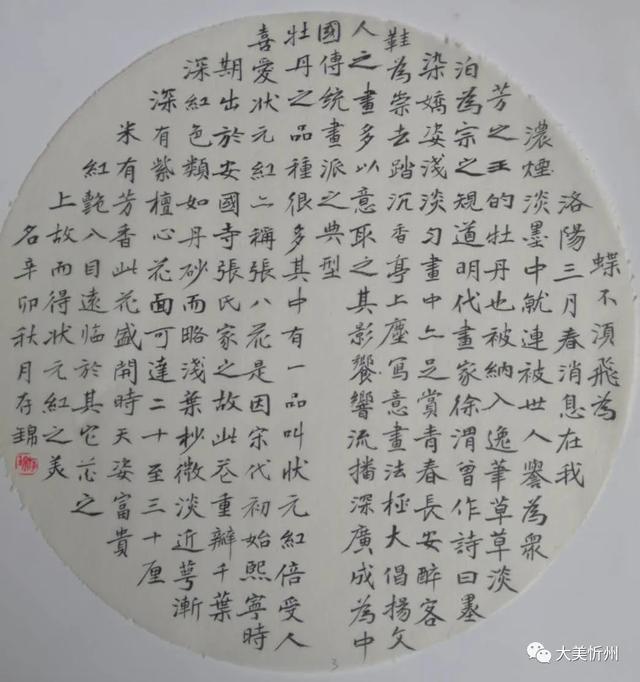 蝶不須飛為
洛陽三月春消息在我
濃煙淡墨中就連被世人譽為眾
芳之王的牡丹也被納入逸筆草草淡
泊為宗之規道明代畫家徐渭曾作詩曰墨
染嬌姿淺淡勻畫中亦足賞青春長安醉客
鞋為崇去踏沉香亭上塵寫意畫法極大倡揚文
人之畫多以意取之其影饗響流播深廣成為中
國傳統畫派之典型
牡丹之品種很多其中有一品叫狀元紅倍受人
喜愛狀元紅亦稱張八花是因宋代初始熙寧時
期出於安國寺張氏家之故此花重瓣千葉
深紅色類如丹砂而略淺葉杪微淡近萼漸
深有紫檀心花面可達二十至三十厘
米有芳香此花盛開時天姿富貴
紅艷入目遠臨於其它花之
上故而得狀元紅之美
名辛卯秋月存錦
3
大美忻州